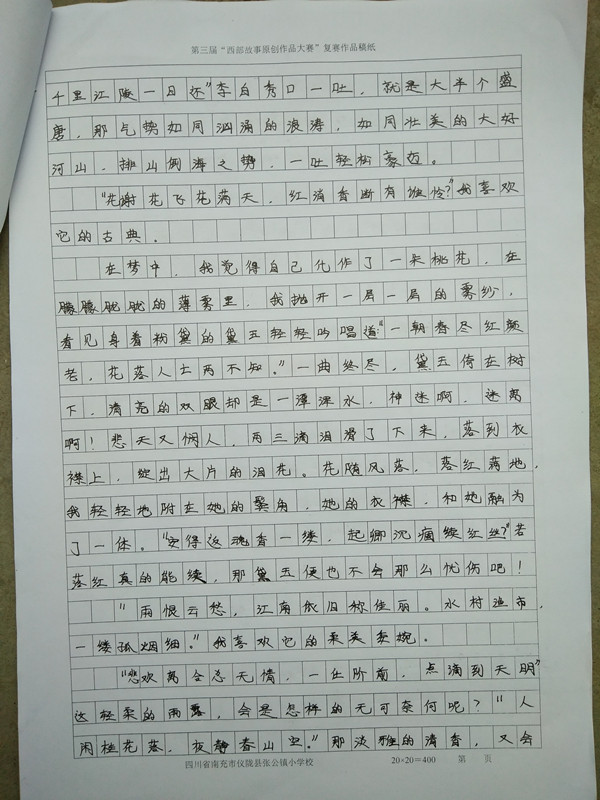 第三届“西部故事原创作品大赛”复赛作品稿纸
千里江陵一日还”李白秀口一吐，就是大半个盛
唐，那气势如同汹涌的浪涛，如同壮美的大好
河山，排山倒海之势，一吐轻松豪迈。
“花谢花飞花满天，红消香断有谁怜？”我喜欢
它的古典。
在梦中，我觉得自己化作了一朵桃花，在
朦朦胧胧的薄雾里，我抛开一层一层的雾纱，
看见身着粉黛的黛玉轻轻吟唱道：“一朝春尽红颜
老，花落人亡两不知。”一曲终尽，黛玉倚在树
下，清亮的双眼却是一潭深水，神迷啊，迷离
啊！悲天又悯人，两三滴泪滑了下来，落到衣
襟上，绽出大片的泪花。花随风落，落红满地，
我轻轻地附在她的鬓角，她的衣襟，和她融为
了一体。“安得返魂香一缕，起卿沉痼续红丝？”若
落红真的能续，那黛玉便也不会那么忧伤吧！
“雨恨云愁，江南依旧称佳丽。水村渔市，
一缕孤烟细。”我喜欢它的柔美委婉。
“悲欢离合总无情，一任阶前，点滴到天明”
这轻柔的雨露，会是怎样的无可奈何呢？“人
闲桂花落，夜静春山空。”那淡雅的清香，又会
四川省南充市仪陇县张公镇小学校 20×20=400 第 页